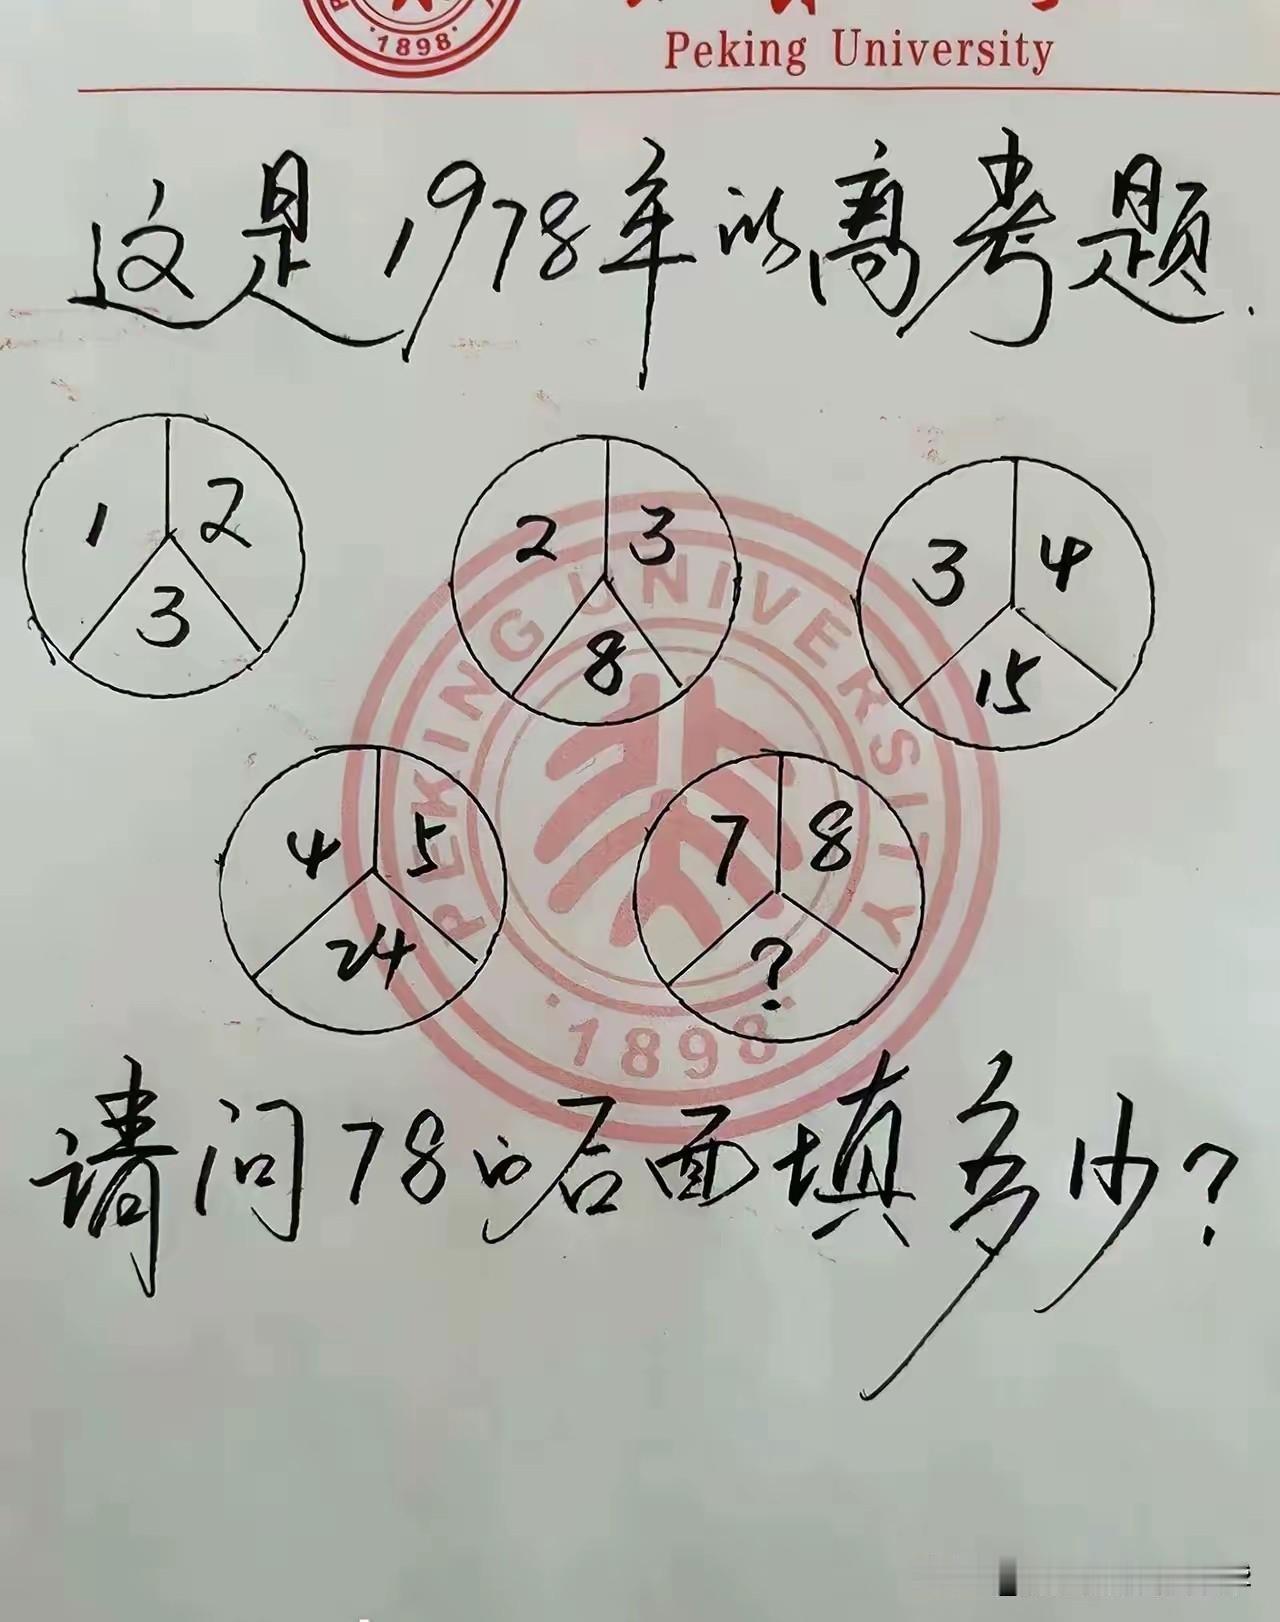 1898
Peking University
这是1978年的高考题.
1 2 3
2 3 8
3 4 15
4 5 24
7 8 ?
PEKING UNIVERSITY
1898
请问78的后面填多少?